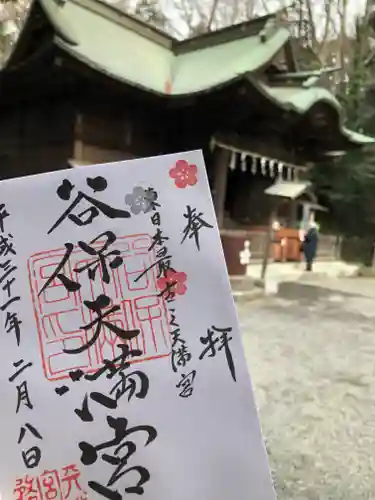 奉拝
東日本最古之天満宮
谷保天満宮
平成三十一年二月八日